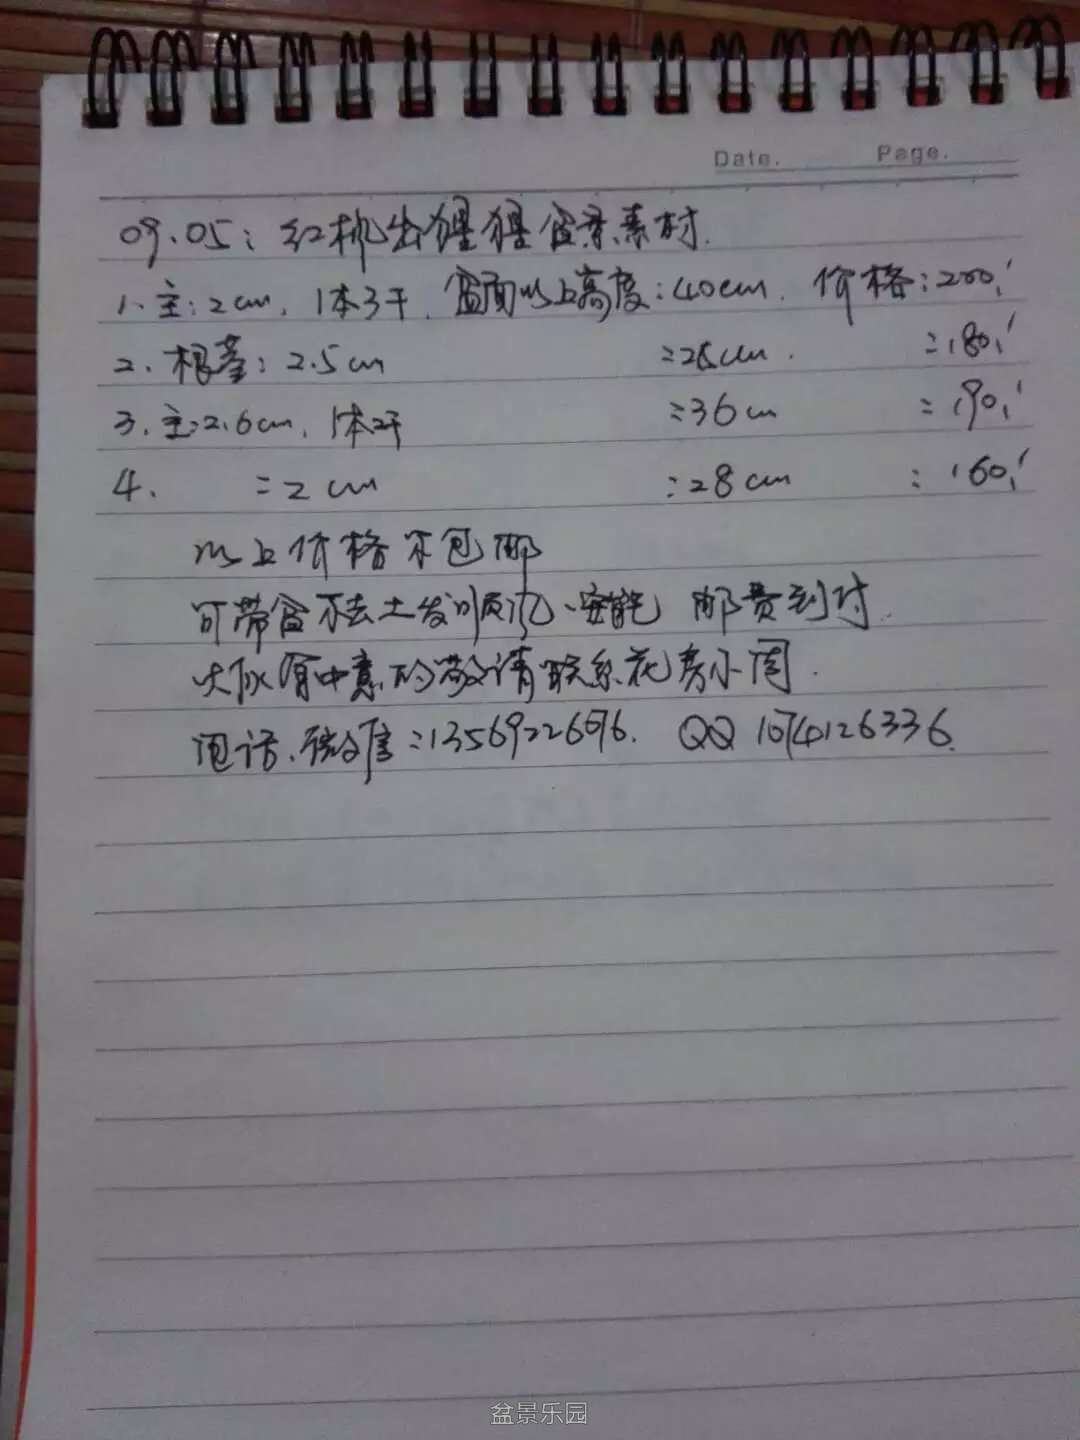 Date. Page.
09.05: 红枫出猩猩盆景素材.
1. 主: 2cm, 1本3干. 盆面以上高度: 40cm. 价格: 200,
2. 根茎: 2.5cm : 28cm. : 180,
3. 主: 2.6cm, 1本2干 : 36cm : 190,
4. : 2cm : 28cm : 160,
以上价格不包邮
可带盆不去土发顺风、安能 邮费到付.
大家有中意的敬请联系花房小周.
电话.微信: 13569226696. QQ 1074126336.
盆景乐园